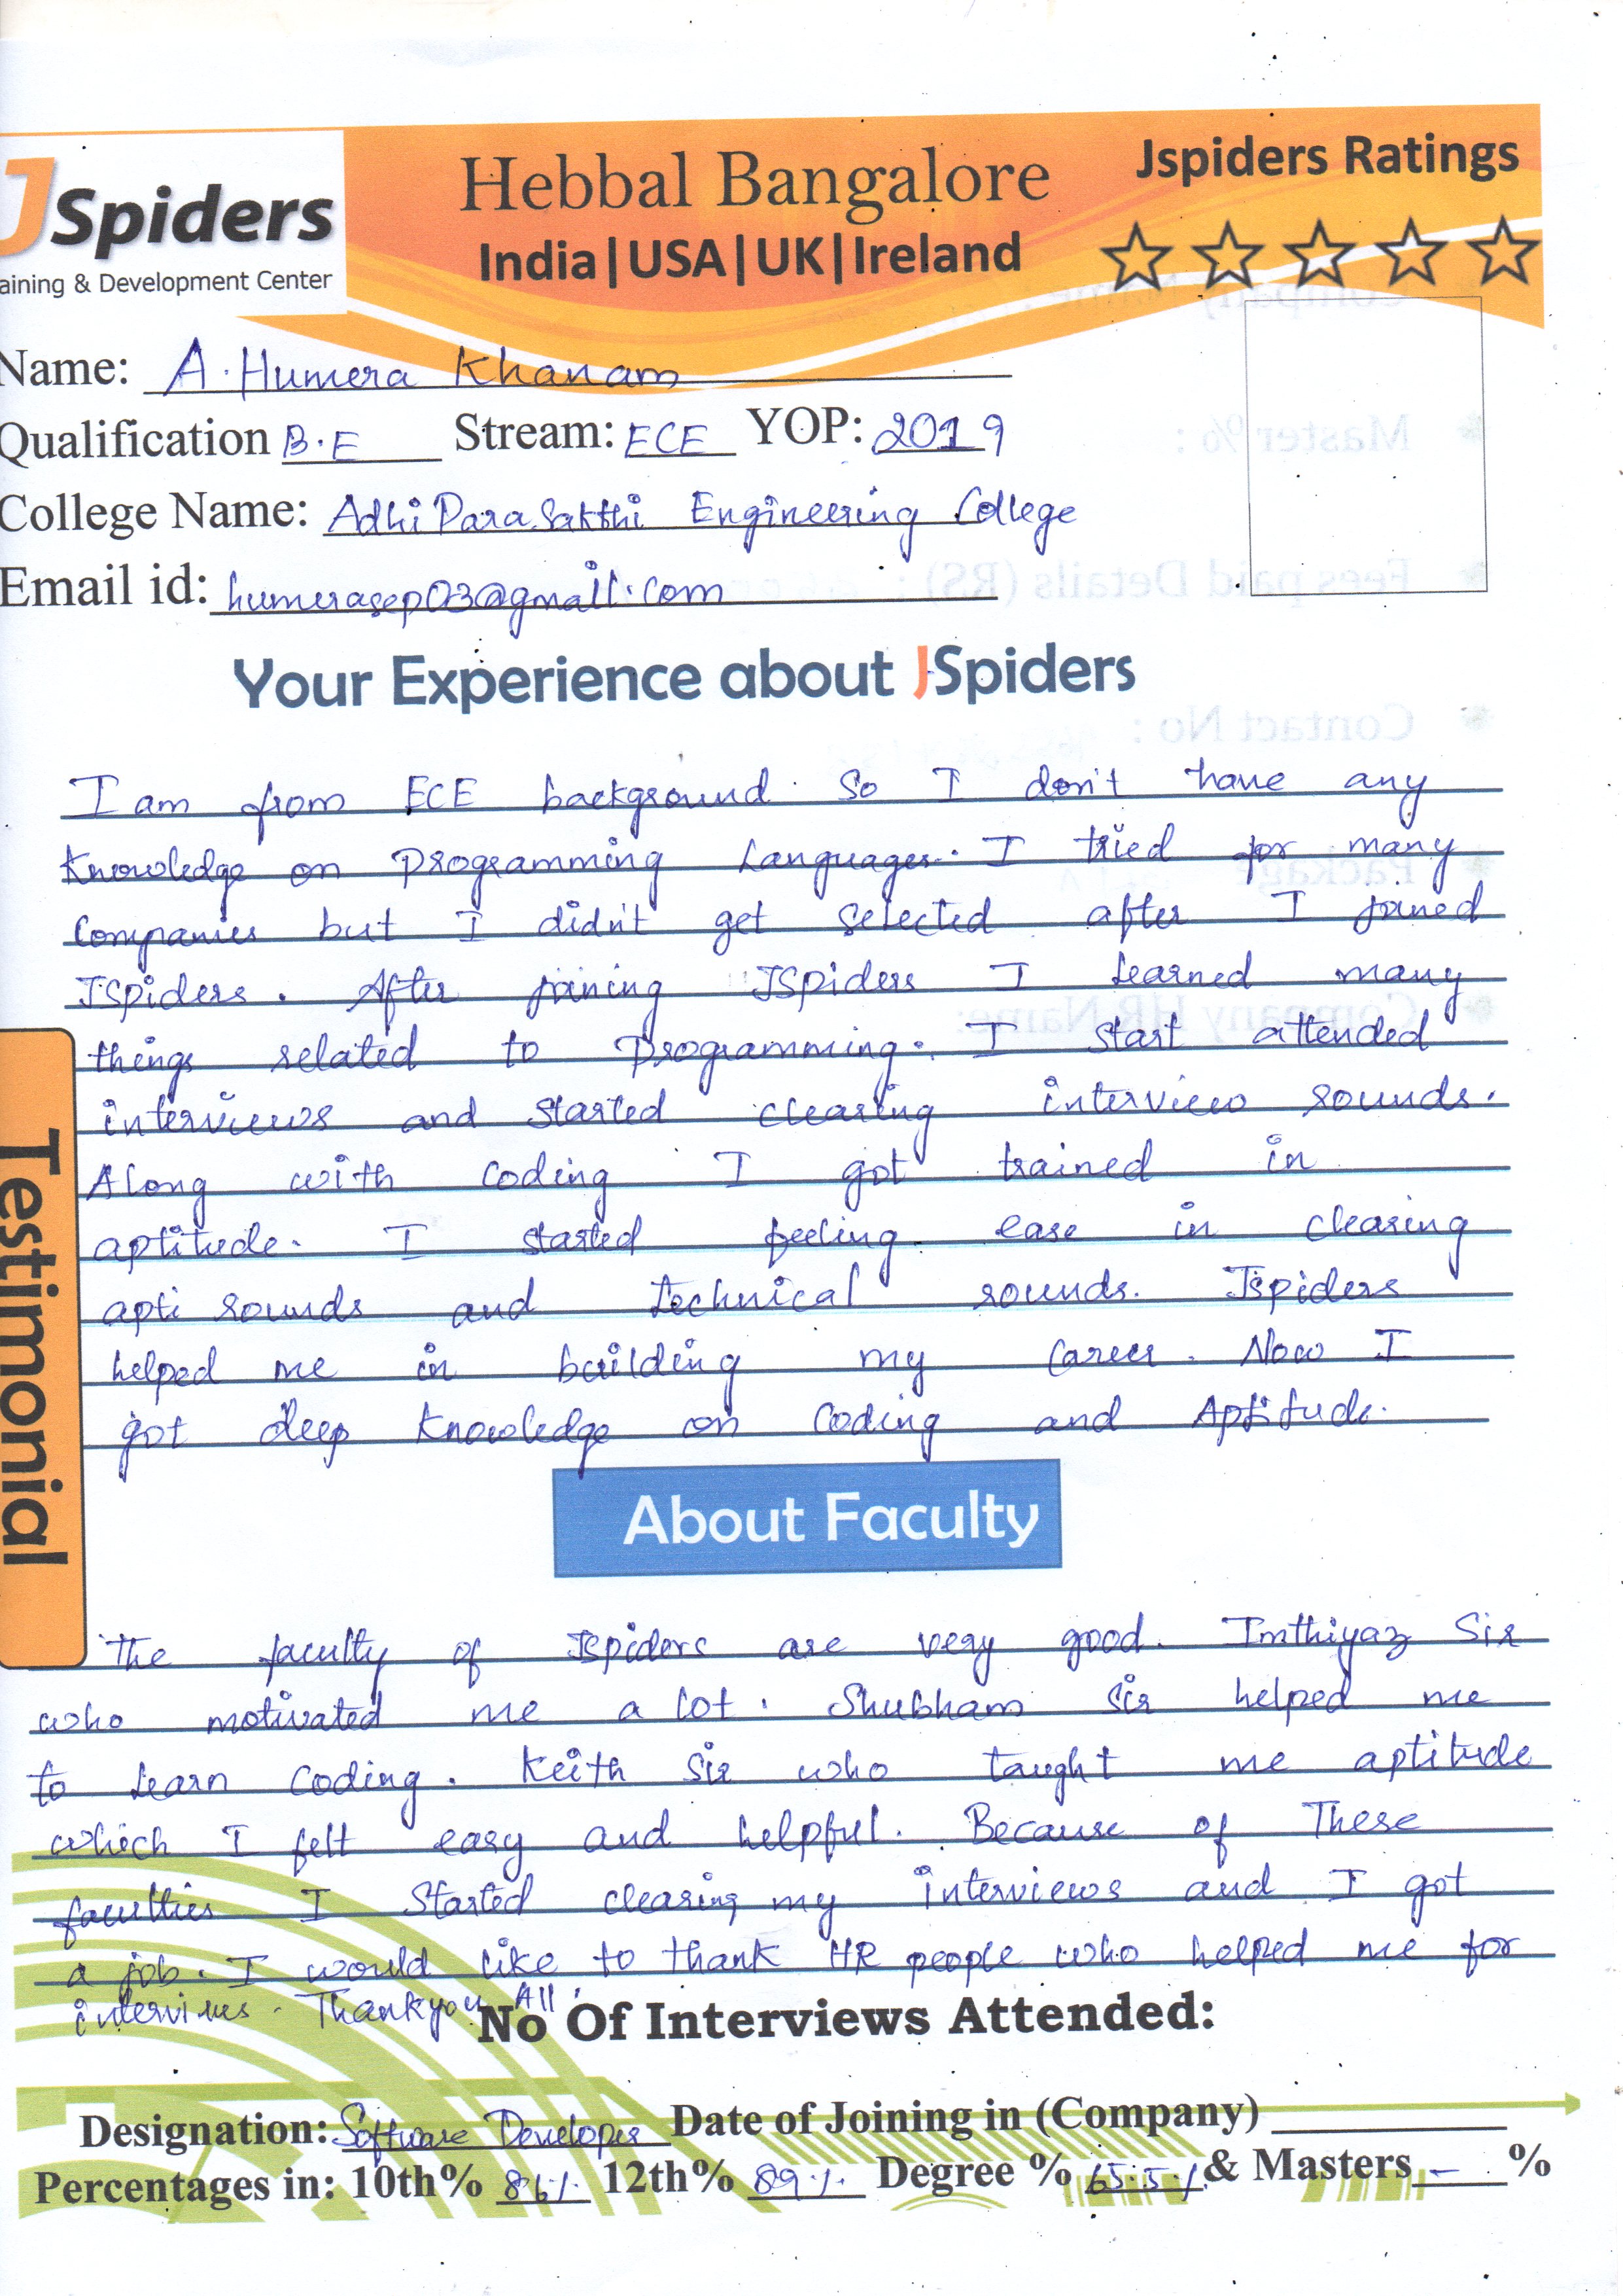 JSpiders
aining & Development Center
Hebbal Bangalore
India|USA|UK|Ireland
Jspiders Ratings
Name: A. Humera Khanam
Qualification B.E Stream: ECE YOP: 2019
College Name: Adhi Para Sakthi Engineering College
Email id: humerasep03@gmail.com
Your Experience about JSpiders
I am from ECE background. So I don't have any
knowledge on programming languages. I tried for many
companies but I didn't get selected after I joined
JSpiders. After joining JSpiders I learned many
things related to programming. I start attended
interviews and started clearing interview rounds.
Along with coding I got trained in
aptitude. I started feeling ease in clearing
apti rounds and technical rounds. Jspiders
helped me in building my career. Now I
got deep knowledge on coding and Aptitude.
Testimonial
About Faculty
The faculty of Jspiders are very good. Imthiyaz Sir
who motivated me a lot. Shubham Sir helped me
to learn coding. Keith Sir who taught me aptitude
which I felt easy and helpful. Because of These
faculties I Started clearing my interviews and I got
a job. I would like to thank HR people who helped me for
interviews. Thankyou All.
No Of Interviews Attended:
Designation: Software Developer Date of Joining in (Company)
Percentages in: 10th% 86% 12th% 89% Degree % 65.5% & Masters - %